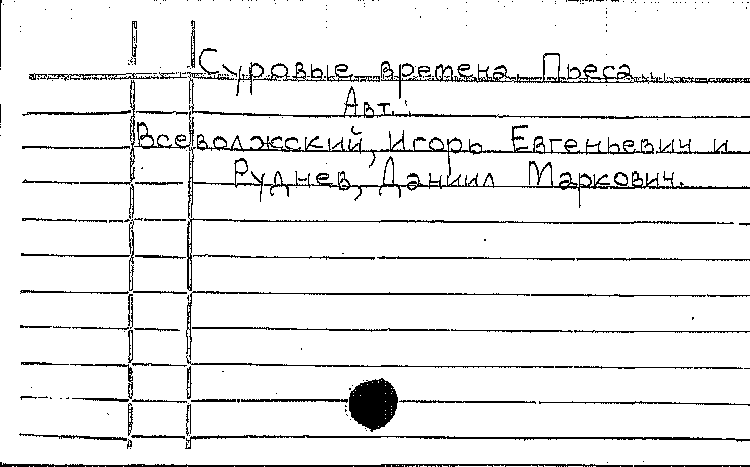 Суровые времена. Пьеса...
Авт.:
Всеволжский, Игорь Евгеньевич и
Руднев, Даниил Маркович.